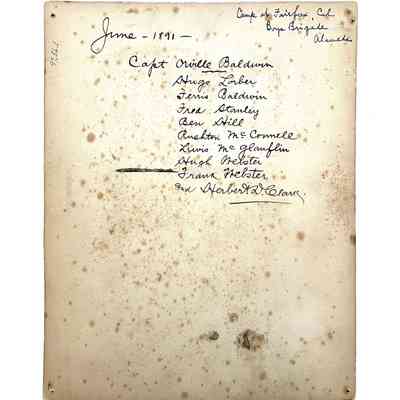 Camp at Fairfax, Cal
Boys Brigade
June - 1891 -
Capt Orville Baldwin
Hugo Lorber
Ferris Baldwin
Fred Stanley
Ben Hill
Rushton McConnell
Lewis McGlauflin
Hugh Webster
Frank Webster
and Herbert D. Clark.